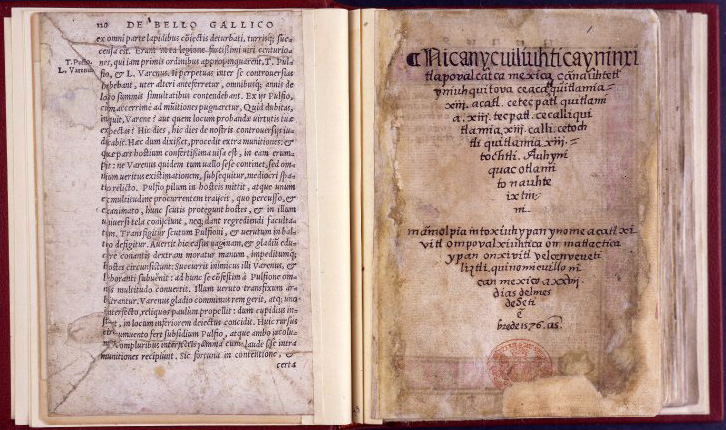 110 DE BELLO GALLICO
ex omni parte lapidibus cōiectis deturbati, turrisq; suc-
censa est. Erant in ea legione fortissimi viri centurio-
T. Pulfio,
L. Varenus
nes, qui iam primis ordinibus appropinquarent, T. Pul-
fio, & L. Varenus. Ii perpetuas inter se controuersias
habebant, uter alteri anteferretur, omnibusq; annis de
loco summis simultatibus contendebant. Ex iis Pulfio,
cum acerrimè ad munitiones pugnaretur, Quid dubitas,
inquit, Varene? aut quem locum probandæ virtutis tuæ
expectas? Hic dies, hic dies de nostris controuersijs iu-
dicabit. Hæc cum dixisset, procedit extra munitiones: &
quæ pars hostium confertissima uisa est, in eam erum-
pit: ne Varenus quidem tum uallo sese continet, sed om-
nium ueritus existimationem, subsequitur, mediocri spa-
tio relicto. Pulfio pilum in hosteis mittit, atque unum
ex multitudine procurrentem traijcit, quo percusso, &
exanimato, hunc scutis protegunt hostes, & in illum
uniuersi tela conijciunt, neq; dant regrediendi faculta-
tem. Transfigitur scutum Pulfioni, & uerutum in bal-
teo defigitur. Auertit hic casus uaginam, & gladiū edu-
cere conantis dextram moratur manum, impeditumq;
hostes circunsistunt: Succurrit inimicus illi Varenus, &
laboranti subuenit: ad hunc se cōfestim à Pulfione om-
nis multitudo conuertit. Illum ueruto transfixum ar-
bitrantur. Varenus gladio comminus rem gerit, atq; uno
interfecto, reliquos paulum propellit: dum cupidius in-
stat, in locum inferiorem deiectus concidit. Huic rursus
circumuento fert subsidium Pulfio, atque ambo incolu-
mes, compluribus interfectis, summa cum laude sese intra
munitiones recipiunt. Sic fortuna in contentione, &
certa
¶ Nican ycuiliuhtica yn inxi
tlapoval catca mexica
yn iuh quitova ce aca quitlamia
xiij. acatl. ce tecpatl quitlami
a. xiij. tecpatl. ce calli qui
tlamia, xiij. calli. ce toch
tli quitlamia xiij
tochtli. Auh yni
quac otlami
to nauhte
ixtin
m.
yn xiuh ypan yn ome acatl xi
vitl ompoval xiuhtica on matlactica
ypan onxivitl
liztli,
can mexico a xxvij
dias del mes
de Seti
ē
brede 1576. as.